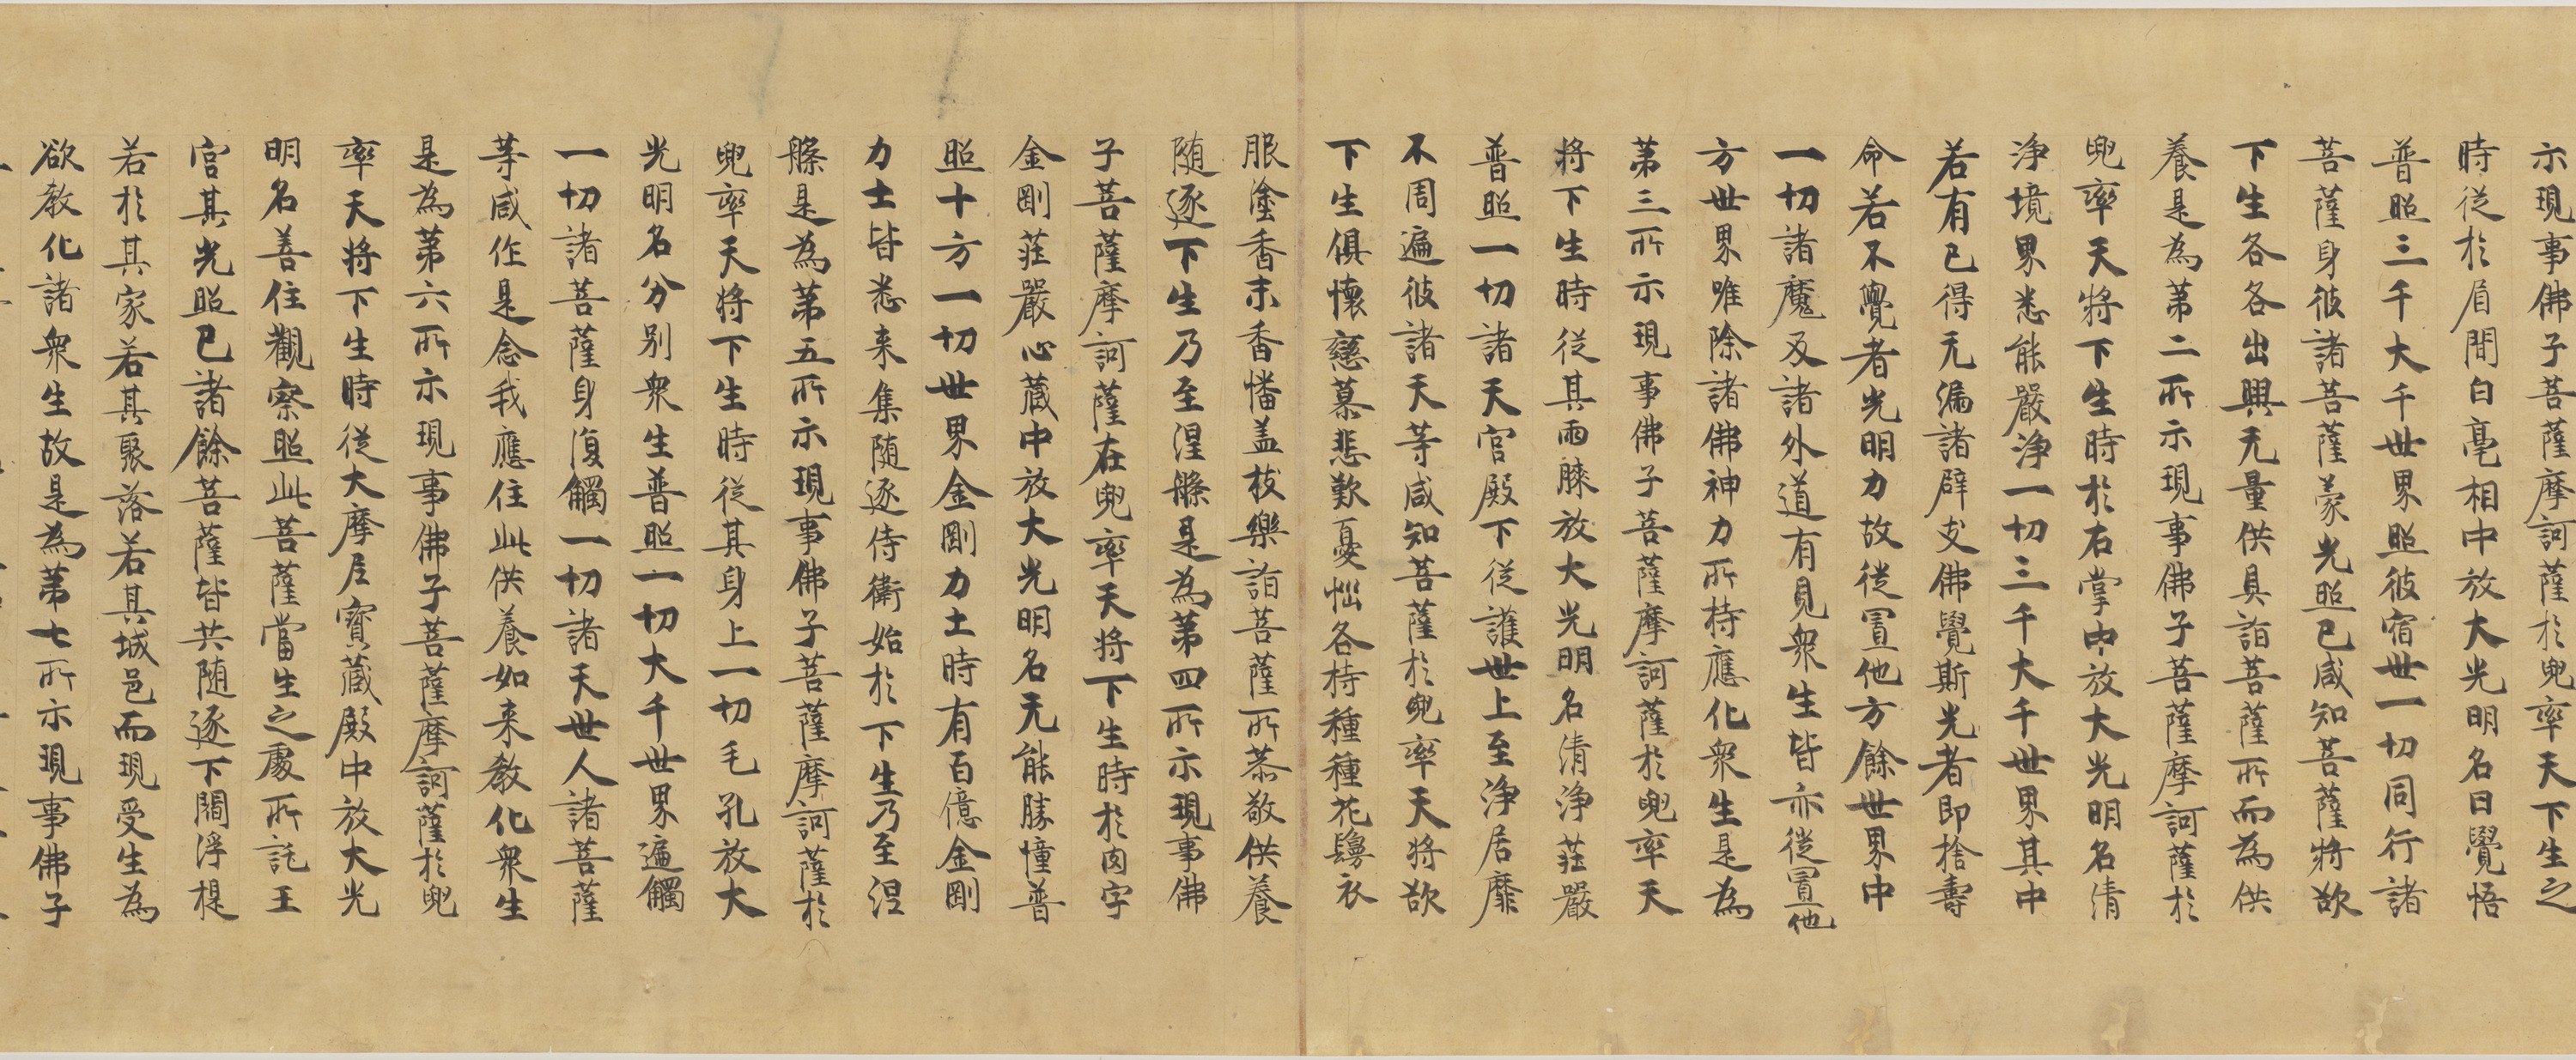 示現事佛子菩薩摩訶薩於兜率天下生之
時從於眉間白毫相中放大光明名曰覺悟
普照三千大千世界照彼宿世一切同行諸
菩薩身彼諸菩薩蒙光照已咸知菩薩將欲
下生各各出興无量供具詣菩薩所而為供
養是為第二所示現事佛子菩薩摩訶薩於
兜率天將下生時於右掌中放大光明名清
淨境界悉能嚴淨一切三千大千世界其中
若有已得无漏諸辟支佛覺斯光者即捨壽
命若不覺者光明力故徙置他方餘世界中
一切諸魔及諸外道有見衆生皆亦徙置他
方世界唯除諸佛神力所持應化衆生是為
第三所示現事佛子菩薩摩訶薩於兜率天
將下生時從其兩膝放大光明名清淨莊嚴
普照一切諸天宮殿下從護世上至淨居靡
不周遍彼諸天等咸知菩薩於兜率天將欲
下生俱懷戀慕悲歎憂惱各持種種花鬘衣
服塗香末香幡盖枝樂詣菩薩所恭敬供養
随逐下生乃至涅槃是為第四所示現事佛
子菩薩摩訶薩在兜率天將下生時於卐字
金剛莊嚴心藏中放大光明名无能勝幢普
照十方一切世界金剛力士時有百億金剛
力士皆悉来集随逐侍衛始於下生乃至涅
槃是為第五所示現事佛子菩薩摩訶薩於
兜率天將下生時從其身上一切毛孔放大
光明名分别衆生普照一切大千世界遍觸
一切諸菩薩身復觸一切諸天世人諸菩薩
等咸作是念我應住此供養如来教化衆生
是為第六所示現事佛子菩薩摩訶薩於兜
率天將下生時從大摩尼寶藏殿中放大光
明名善住觀察照此菩薩當生之處所託王
宫其光照已諸餘菩薩皆共随逐下閻浮提
若於其家若其聚落若其城邑而現受生為
欲教化諸衆生故是為第七所示現事佛子